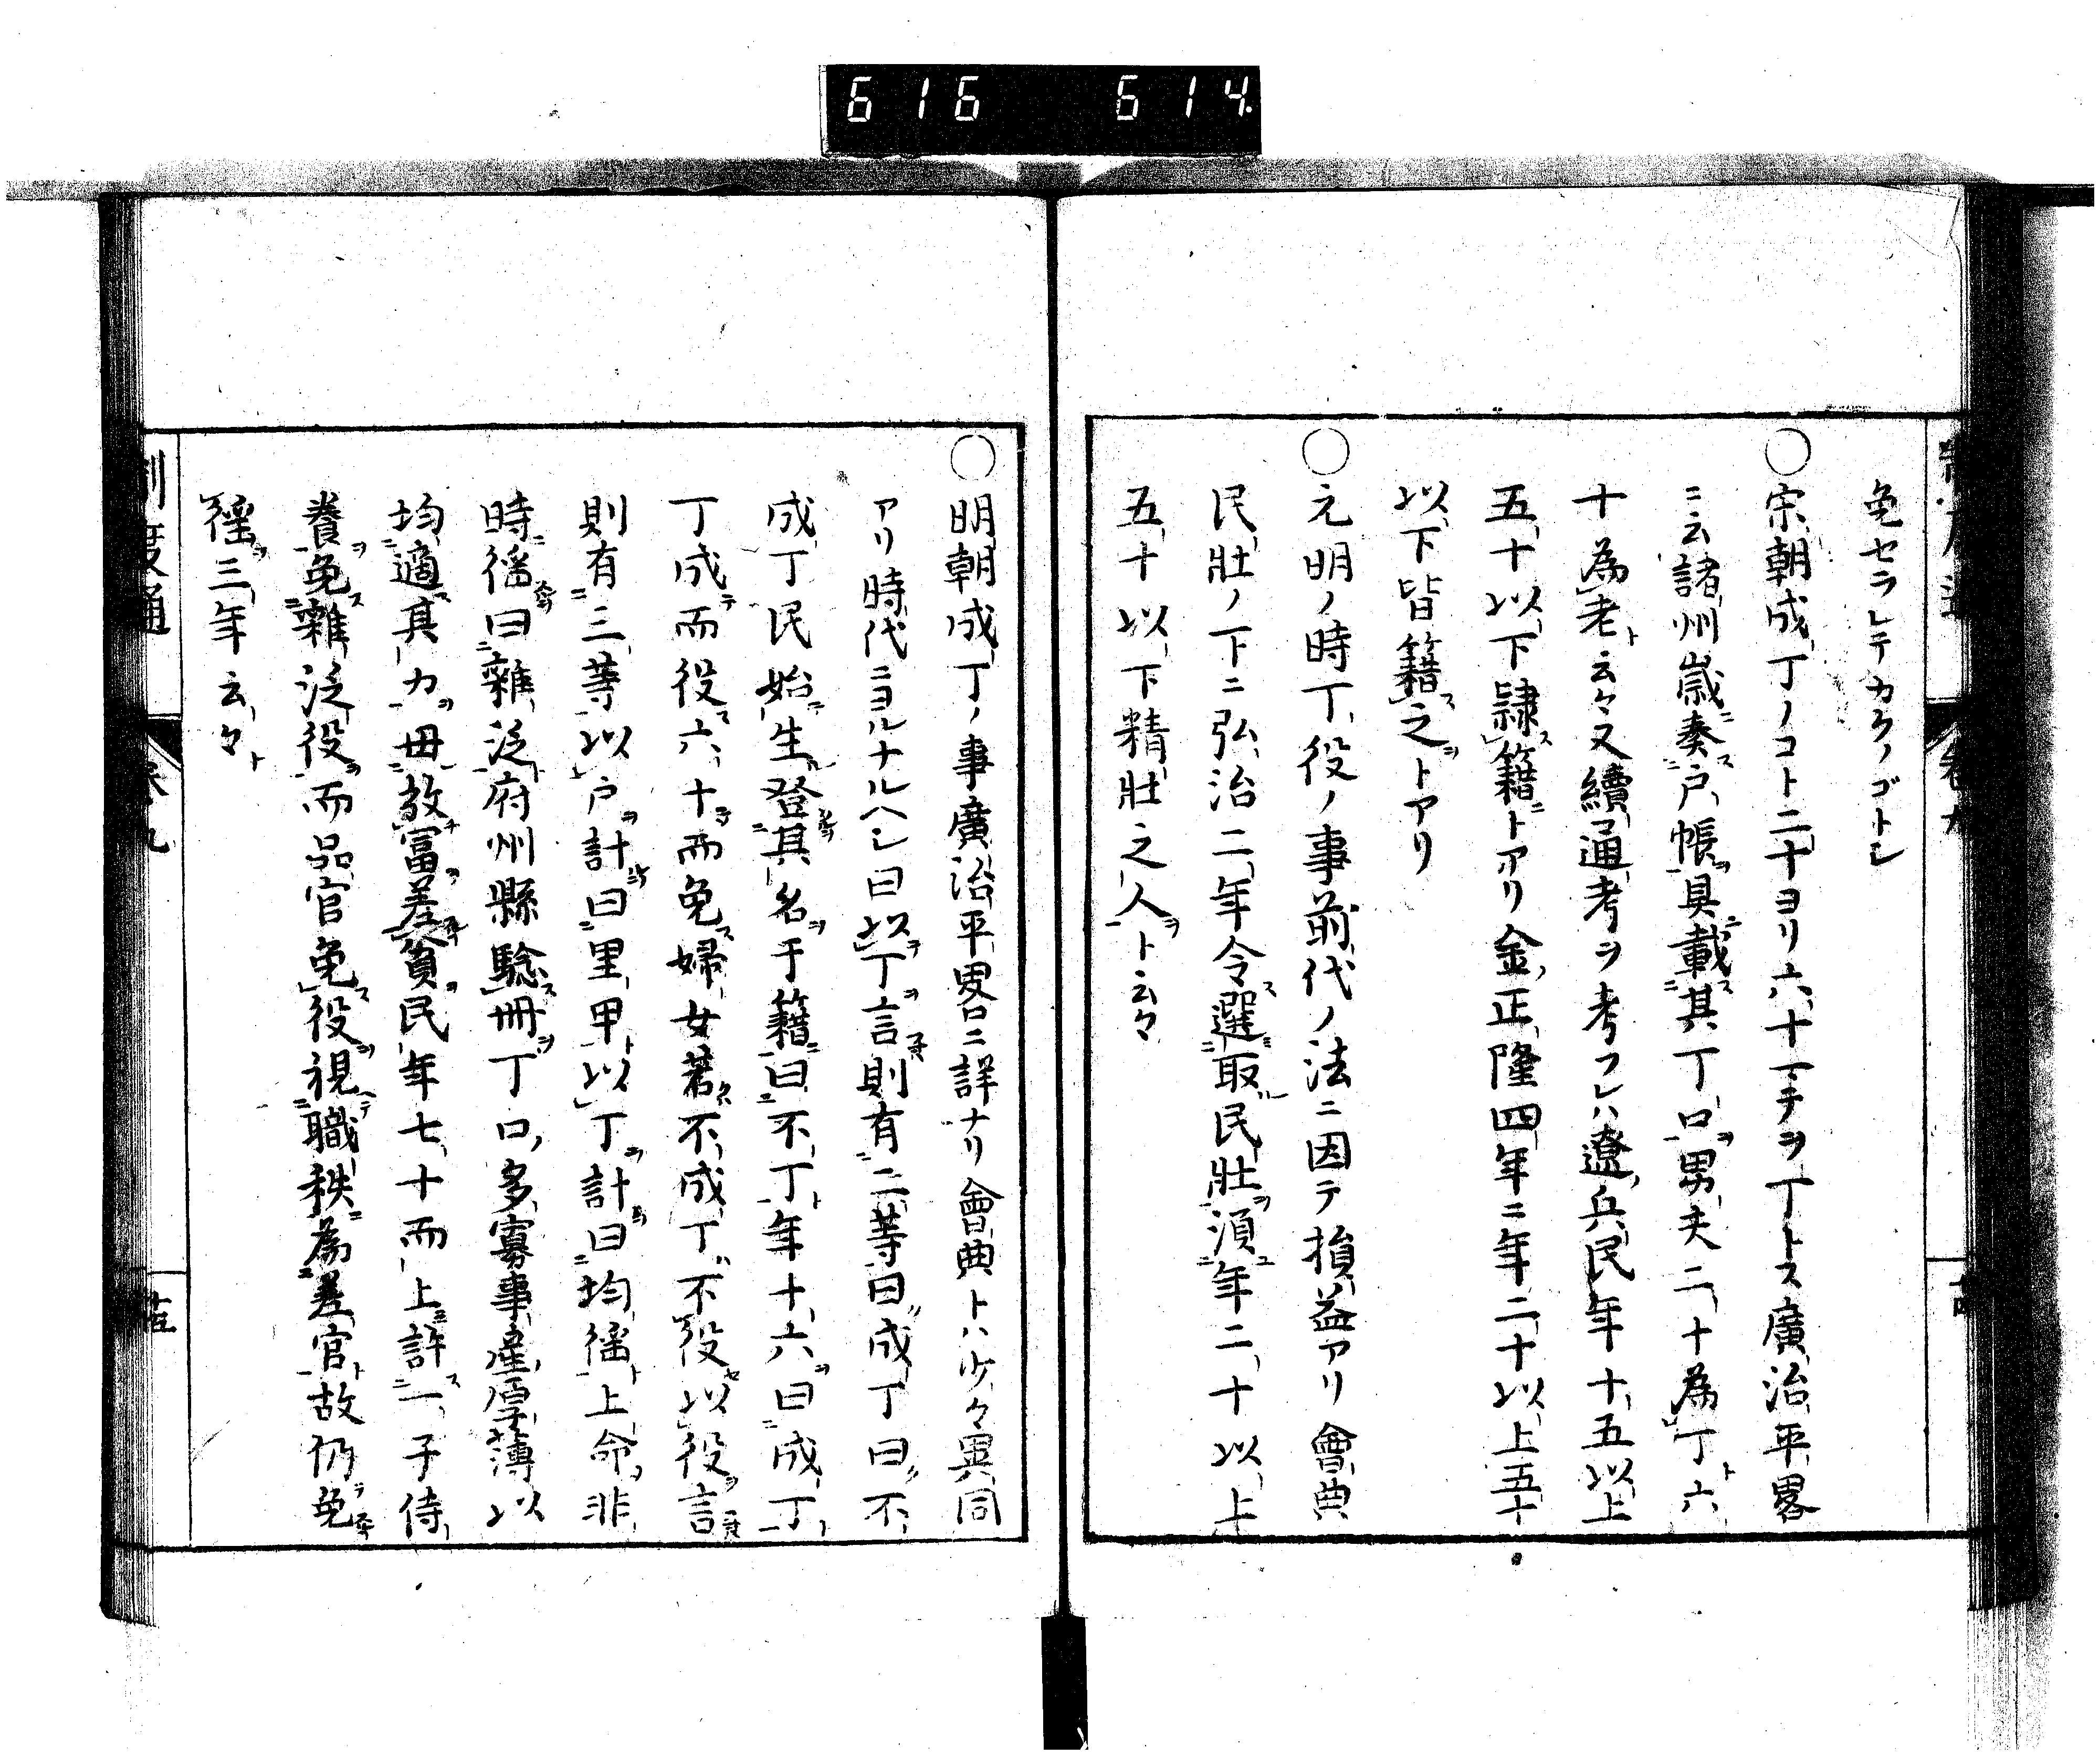 616 614
免セラレテカクノゴトシ
〇宗朝成丁ノコト二十ヨリ六十マテヲ丁トス廣治平畧
ニ云諸州歳奏戸帳具載其丁口男夫二十為丁六
十為老云々又續通考ヲ考フレハ遼兵民年十五以上
五十以下隷籍トアリ金正隆四年ニ年二十以上五十
以下皆籍之トアリ
〇元明ノ時丁役ノ事前代ノ法ニ因テ損益アリ會典
民壯ノ下ニ弘治二年令選取民壯須年二十以上
五十以下精壯之人ト云々
〇明朝成丁ノ事廣治平畧ニ詳ナリ會典トハ少々異同
アリ時代ニヨルナルヘシ曰以丁言則有二等曰成丁曰不
成丁民始生登其名于籍曰不丁年十六曰成丁
丁成而役六十而免婦女若不成丁不役以役言
則有三等以戸計曰里甲以丁計曰均徭上命非
時徭曰雜泛府州縣驗冊丁口多寡事產厚薄以
均適其力毋敎富差貧民年七十而上許一子侍
養免雜泛役而品官免役視職秩為差官故仍免
徭三年云々
制度通 卷九